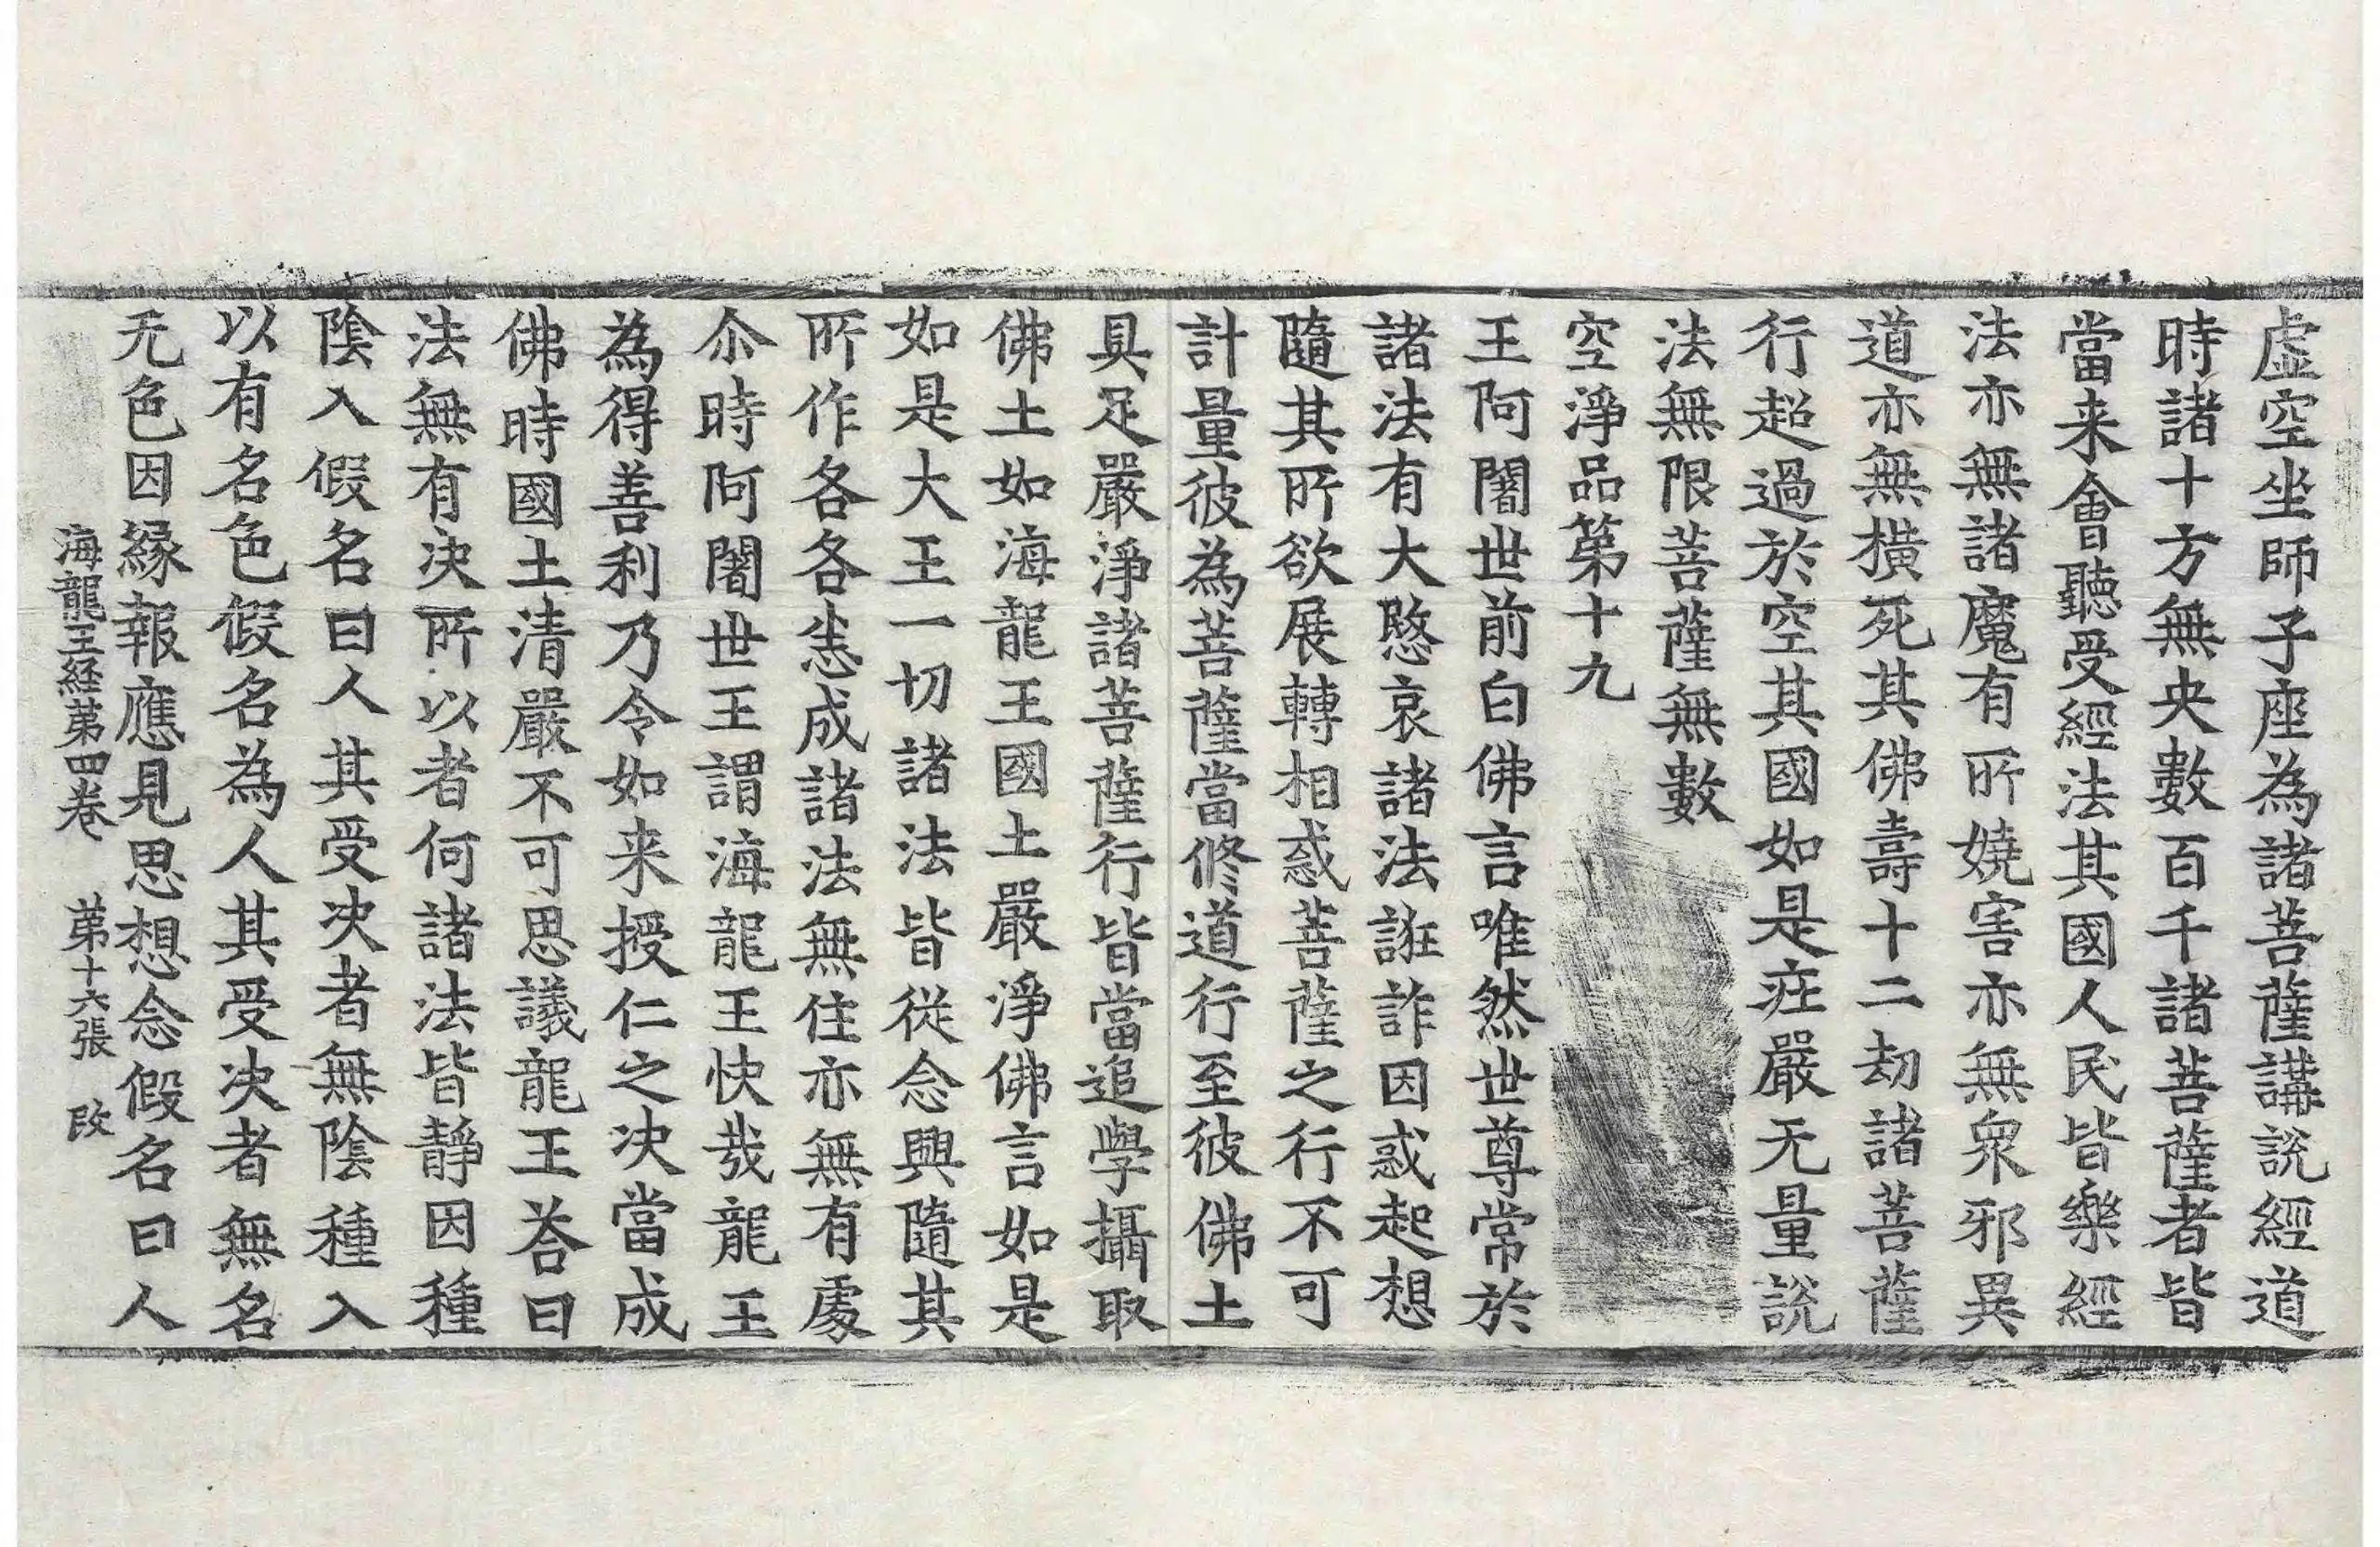 虛空坐師子座為諸菩薩講說經道
時諸十方無央數百千諸菩薩者皆
當来會聽受經法其國人民皆樂經
法亦無諸魔有所嬈害亦無衆邪異
道亦無橫死其佛壽十二劫諸菩薩
行超過於空其國如是疰嚴无量說
法無限菩薩無數
空淨品第十九
王阿闍世前白佛言唯然世尊常於
諸法有大愍哀諸法誑詐因惑起想
隨其所欲展轉相惑菩薩之行不可
計量彼為菩薩當修道行至彼佛土
具足嚴淨諸菩薩行皆當追學攝取
佛土如海龍王國土嚴淨佛言如是
如是大王一切諸法皆從念興隨其
所作各各恙成諸法無住亦無有處
尒時阿闍世王謂海龍王快哉龍王
為得善利乃令如来授仁之决當成
佛時國土清嚴不可思議龍王荅曰
法無有决所以者何諸法皆靜因種
陰入假名曰人其受决者無陰種入
以有名色假名為人其受决者無名
无色因緣報應見思想念假名曰人
海龍王経苐四卷 苐十六張 改